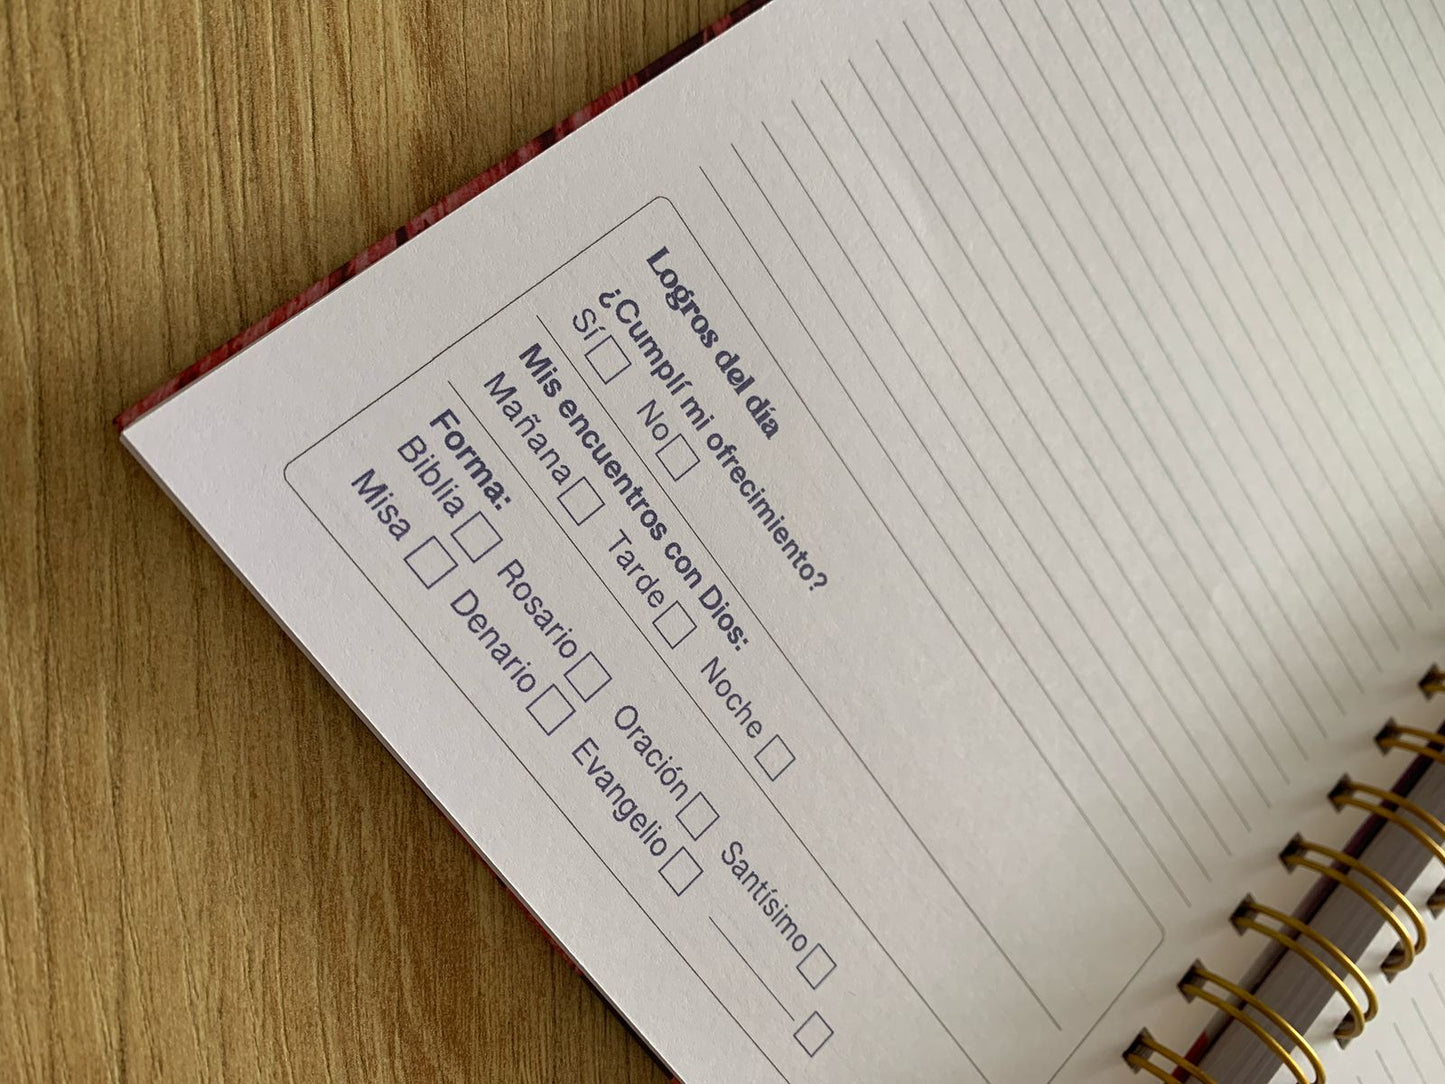 Logros del día
¿Cumplí mi ofrecimiento?
Sí No
Mis encuentros con Dios:
Mañana Tarde Noche
Forma:
Biblia Rosario Oración Santísimo
Misa Denario Evangelio